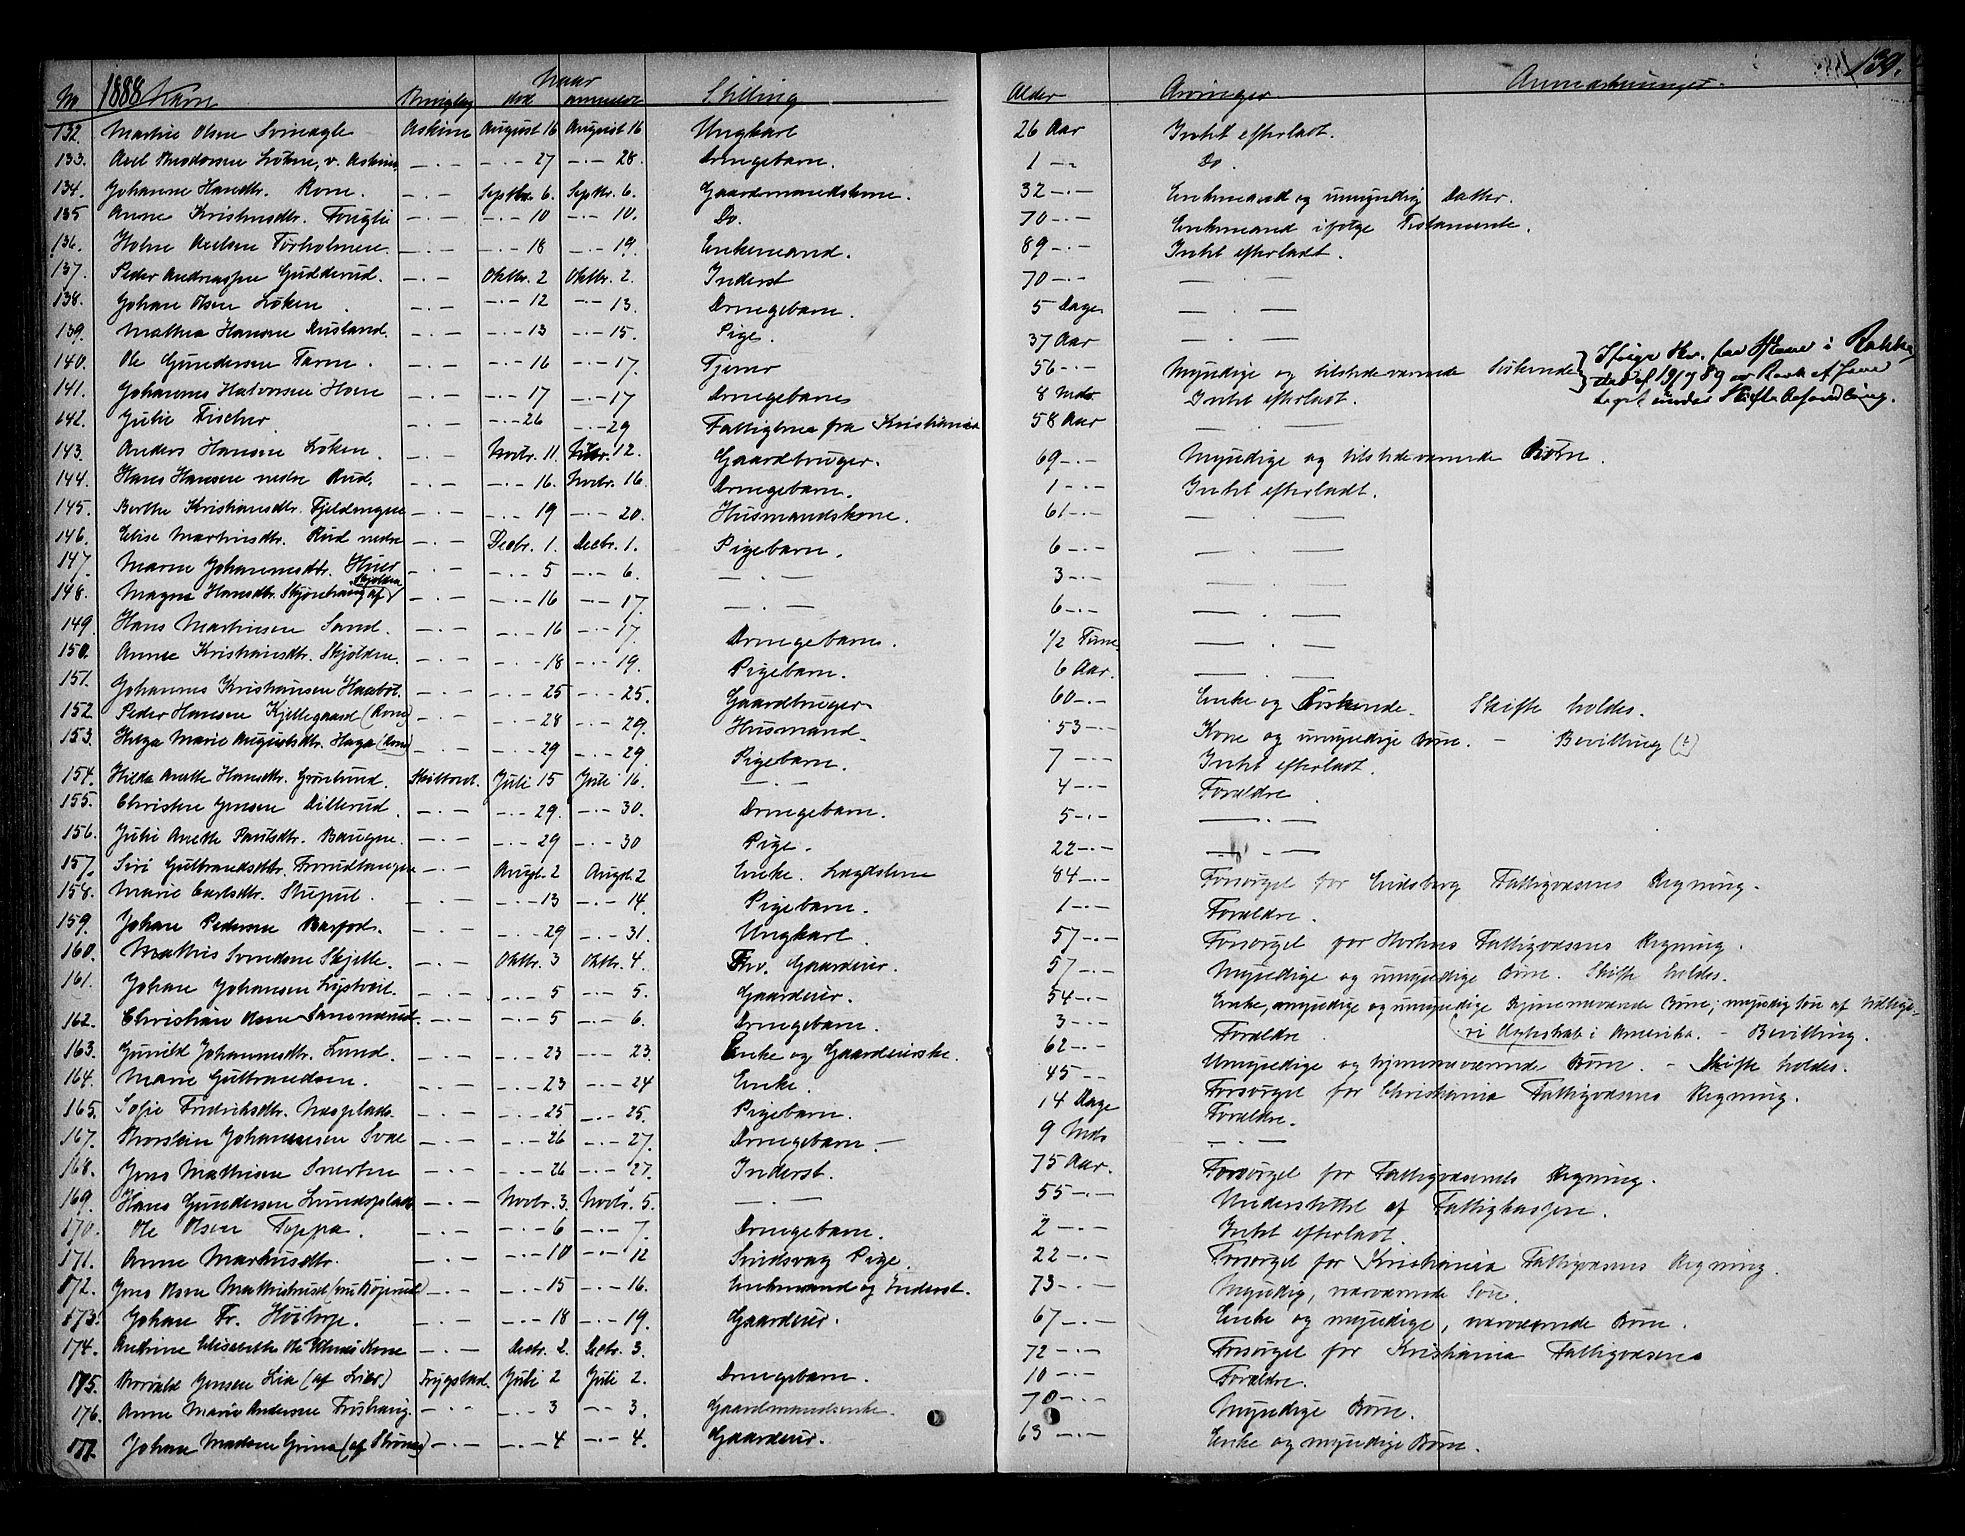 139.
No 1888 Navn Thinglag Naar død anmeldt Stilling Alder Arvinger Anmærkninger.
132. Martin Olsen Svinægle Askim August 16 August 16 Ungkarl 26 Aar Intet efterladt.
133. Axel Løken, v. Askim — · — — · — 27 — · — 28. Drengebarn. 1 — „ Do.
134. Johanne Hansdtr. Rom. — · — Septbr. 6. Septbr. 6. Gaardmandskone. 32 — · — Enkemand og umyndig Datter.
135 Anne Kristensdtr. Fuglli — · — — · — 10 — · — 10. Do. 70 — · — Enkemand ifølge Testamente.
136. Axelsen Torholmen — · — — · — 18 — · — 19. Enkemand. 89 — · — Intet efterladt.
137. Peder Andreassen Gudderud. — · — Oktbr. 2 Oktbr. 2. Inderst 70 — · — — · —
138. Johan Olsen Løken — · — — · — 12 — · — 13. Drengebarn. 5 Dage — · —
139. Mathea Hansen — · — — · — 13 — · — 15. Pige. 37 Aar — · —
140. Ole Gundersen — · — — · — 16 — · — 17. Tjener 56 — · — Myndige og tilstedeværende Søskende } Ifølge Skr. fra i Rakke-
stad af 19/9 89 er Boet af
taget under Skiftebehandling.
141. Johannes Halvorsen Hom — · — — · — 17 — · — 17 Drengebarn 8 Mdr Intet efterladt.
142. Julie Fischer — · — — · — 26 — · — 29 Fattiglem fra Kristiania 58 Aar — · —
143. Anders Hansen Løken. — · — Novbr. 11. Novbr. 12. Gaardbruger. 69 — · — Myndige og tilstedeværende Børn.
144. Hans Hansen nedre Rud. — · — — · — 16. Novbr. 16. Drengebarn. 1 — · — Intet efterladt.
145. Berthe Kristiansdtr. Fjeldengen — · — — · — 19 — · — 20. Husmandskone. 61 — · — — · —
146. Elise Martinsdtr. Rud nedre — · — Decbr. 1. Decbr. 1. Pigebarn. 6 — · — — · —
147. Maren Johannesdtr. Huer — · — — · — 5 — · — 6. — · — 3 — · — — · —
148. Magna Hansdtr. Skjønhaug af Skjolden — · — — · — 16 — · — 17. — · — 6 — · — — · —
149. Hans Martinsen Sand. — · — — · — 16 — · — 17. Drengebarn. 1/2 Time — · —
150. Anna Kristiansdtr. Skjolden. — · — — · — 18 — · — 19. Pigebarn. 6 Aar. — · —
151. Johannes Kristiansen Haabøl. — · — — · — 25 — · — 25. Gaardbruger 60 — · — Enke og Søskende. Skifte holdes.
152 Peder Hansen Kjellegaard (Rom) — · — — · — 28 — · — 29. Husmand 53 — · — Kone og umyndige Børn. — Bevilling (?)
153. Helga Marie Augustsdtr. Haga (Rom) — · — — · — 29 — · — 29. Pigebarn. 7 — · — Intet efterladt.
154. Hilda Anette Hansdtr. Grønlund. Skiptvet. Juli 15 Juli 16. — · — 4 — · — Forældre
155. Christen Jensen Lillerud. — · — — · — 29. — · — 30. Drengebarn. 5 — · — — · —
156. Julie Anette Paulsdtr. Baugen. — · — — · — 29 — · — 30 Pige. 22 — · — — · —
157. Siri Gulbrandsdtr. — · — Augt. 2 Augt. 2 Enke. Lægdslem 84 — · — Forsørget for Eidsberg Fattigvæsens Regning.
158. Marie Carlsdtr. Stupul. — · — — · — 13 — · — 14. Pigebarn. 1 — · — Forældre.
159. Johan Pedersen — · — — · — 29 — · — 31. Ungkarl. 57 — · — Forsørget for Hortens Fattigvæsens Regning.
160. Mathis Svendsen Skjelle. — · — Oktbr. 3 Oktbr. 4. Fhv. Gaardeier. 57 — · — Myndige og umyndige Børn. Skifte holdes.
161. Johan Johansen Løstveit. — · — — · — 5 — · — 5. Gaardeier. 54 — · — Enke, myndige og umyndige hjemmeværende Børn; myndig Søn af tidlige-
re Ægteskab i Amerika. — Bevilling.
162. Christian Olsen — · — — · — 5 — · — 6. Drengebarn. 3 — · — Forældre
163. Gunild Johannesdtr. Lund. — · — — · — 23 — · — 23. Enke og Gaardeierske. 62 — · — Umyndige og hjemmeværende Børn. — Skifte holdes.
164. Marie Gulbrandsen. — · — — · — 23 — · — 24 Enke. 45 — „ Forsørget for Christiania Fattigvæsens Regning.
165. Sofie Fredriksdtr. Næsplads. — · — — · — 25 — · — 25. Pigebarn. 14 Dage Forældre.
167. Thorstein Johannessen Svae — · — — · — 26 — · — 27. Drengebarn — 9 Mdr — · —
168. Jens Mathisen — · — — · — 26 — · — 27. Inderst. 75 Aar. Forsørget for Fattigvæsenets Regning.
169. Hans Gundersen Lundsplads — · — Novbr. 3. Novbr. 5. — · — 55 — · — Understøttet af Fattigkassen.
170. Ole Olsen Toppa. — · — — · — 6 — · — 7. Drengebarn. 2 — · — Intet efterladt.
171. Anne Markusdtr. — · — — · — 10 — · — 12 Sindsvag Pige. 22 — · — Forsørget for Kristiania Fattigvæsens Regning.
172. Jens Olsen — · — — · — 15 — · — 16. Enkemand og Inderst. 73 — · — Myndig, nærværende Søn.
173. Johan Fr. Høitorp. — · — — · — 18 — · — 19. Gaardeier. 67 — · — Enke og myndige, nærværende Børn.
174. Andrine Elisabeth Kone — · — Decbr. 2. Decbr. 3. 72 — · — Forsørget for Kristiania Fattigvæsens
175. Thorvald Jensen Lia (af Lier) Trygstad. Juli 2 Juli 2. Drengebarn. 10 — · — Forældre.
176. Anne Marie Andersen — · — — · — 3 — · — 3. Gaardmandsenke. 70 — · — Myndige Børn.
177. Johan Madsen (af ) — · — — · — 4 — · — 4. Gaardeier. 63 — · — Enke og myndige Børn.